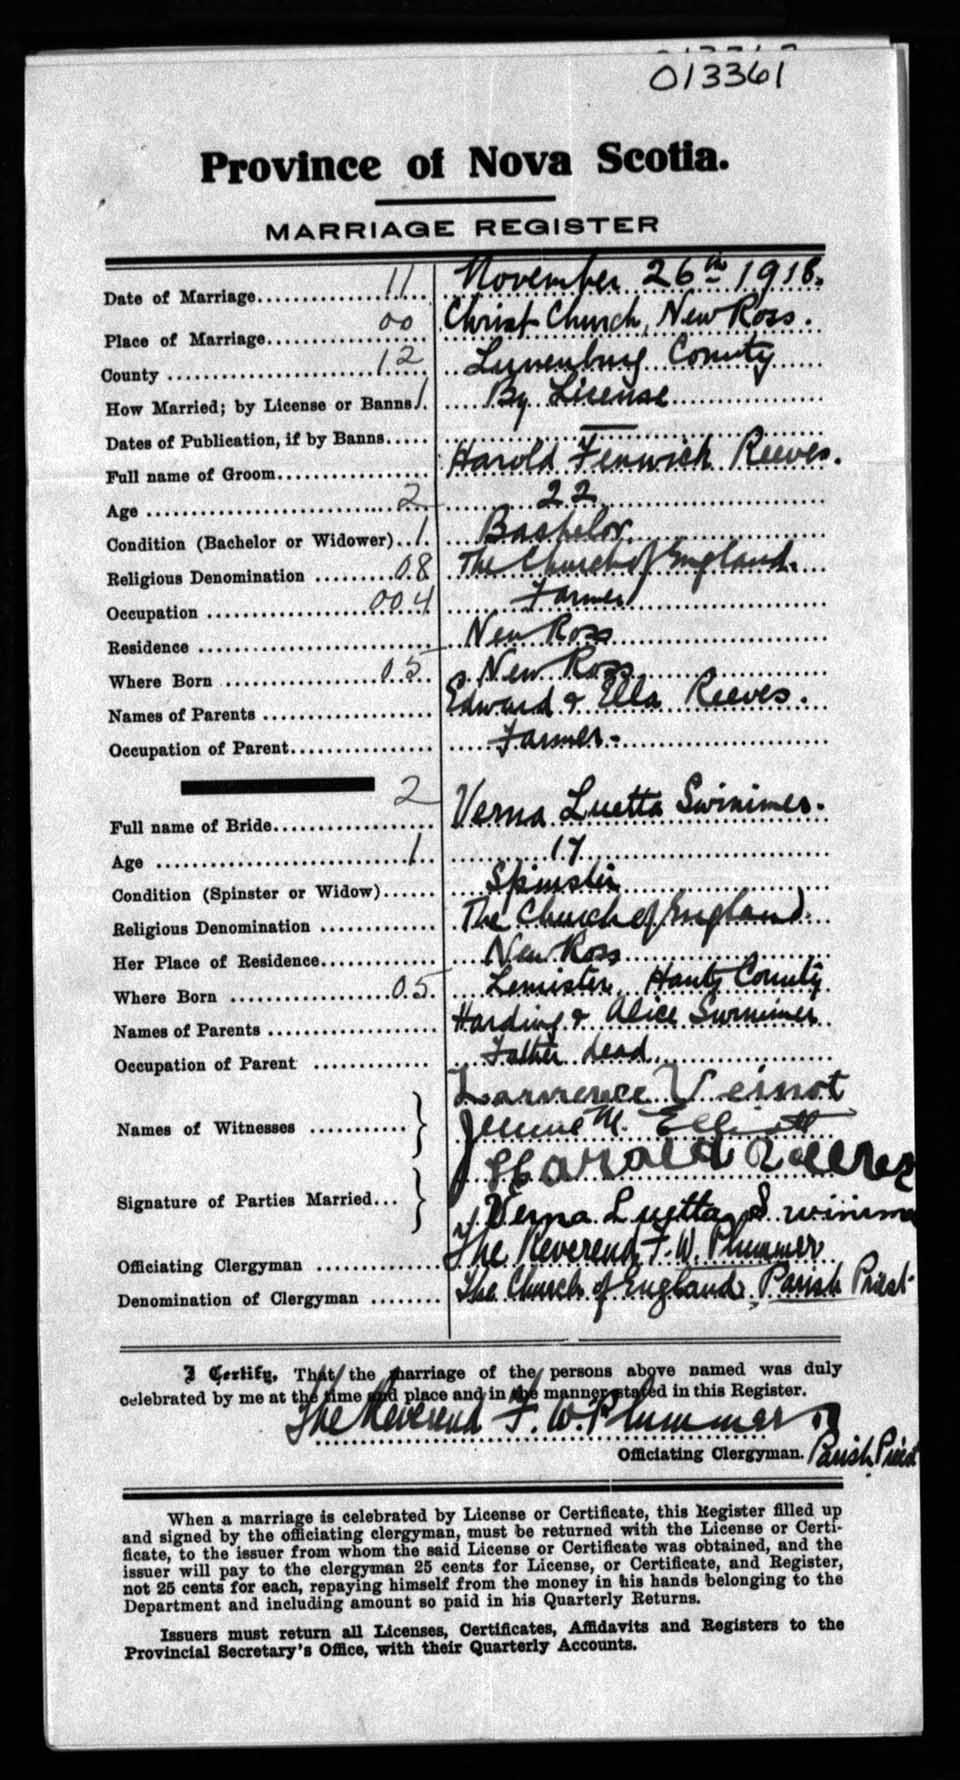 013361
Province of Nova Scotia.
MARRIAGE REGISTER
Date of Marriage 11 November 26th 1918.
Place of Marriage 00 Christ Church, New Ross.
County 12 Lunenburg County
How Married; by License or Banns 1. By License
Dates of Publication, if by Banns —
Full name of Groom Harold Fenwick Reeves.
Age 2 22
Condition (Bachelor or Widower) 1. Bachelor.
Religious Denomination 08 The Church of England.
Occupation 004 Farmer
Residence New Ross
Where Born 05 New Ross
Names of Parents Edward & Ella Reeves.
Occupation of Parent Farmer-
2
Full name of Bride Verna Luetta Swinimer.
Age 1 17
Condition (Spinster or Widow) Spinster
Religious Denomination The Church of England.
Her Place of Residence New Ross
Where Born 05 Lemister, Hants County
Names of Parents Harding & Alice Swinimer
Occupation of Parent Father dead
Names of Witnesses Lawrence Veinot
M. Elliott
Signature of Parties Married Harald Reeves
Verna Luetta Swinimer
Officiating Clergyman The Reverend F. W. Plummer
Denomination of Clergyman The Church of England. Parish Priest
I Certify, That the marriage of the persons above named was duly
celebrated by me at the time and place and in the manner stated in this Register.
The Reverend F. W. Plummer
Officiating Clergyman. Parish Priest
When a marriage is celebrated by License or Certificate, this Register filled up
and signed by the officiating clergyman, must be returned with the License or Certi-
ficate, to the issuer from whom the said License or Certificate was obtained, and the
issuer will pay to the clergyman 25 cents for License, or Certificate, and Register,
not 25 cents for each, repaying himself from the money in his hands belonging to the
Department and including amount so paid in his Quarterly Returns.
Issuers must return all Licenses, Certificates, Affidavits and Registers to the
Provincial Secretary's Office, with their Quarterly Accounts.